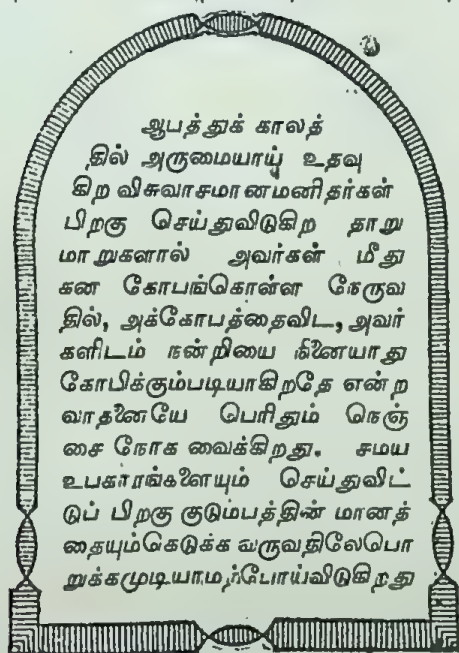 ஆபத்துக் காலத்
தில் அருமையாய் உதவு
கிற விசுவாசமானமனிதர்கள்
பிறகு செய்துவிடுகிற தாறு
மாறுகளால் அவர்கள் மீது
கன கோபங்கொள்ள நேருவ
தில், அக்கோபத்தைவிட, அவர்
களிடம் நன்றியை நினையாது
கோபிக்கும்படியாகிறதே என்ற
வாதனையே பெரிதும் நெஞ்
சை நோக வைக்கிறது. சமய
உபகாரங்களையும் செய்துவிட்
டுப் பிறகு குடும்பத்தின் மானத்
தையும்கெடுக்க வருவதிலேபொ
றுக்கமுடியாமற்போய்விடுகிறது